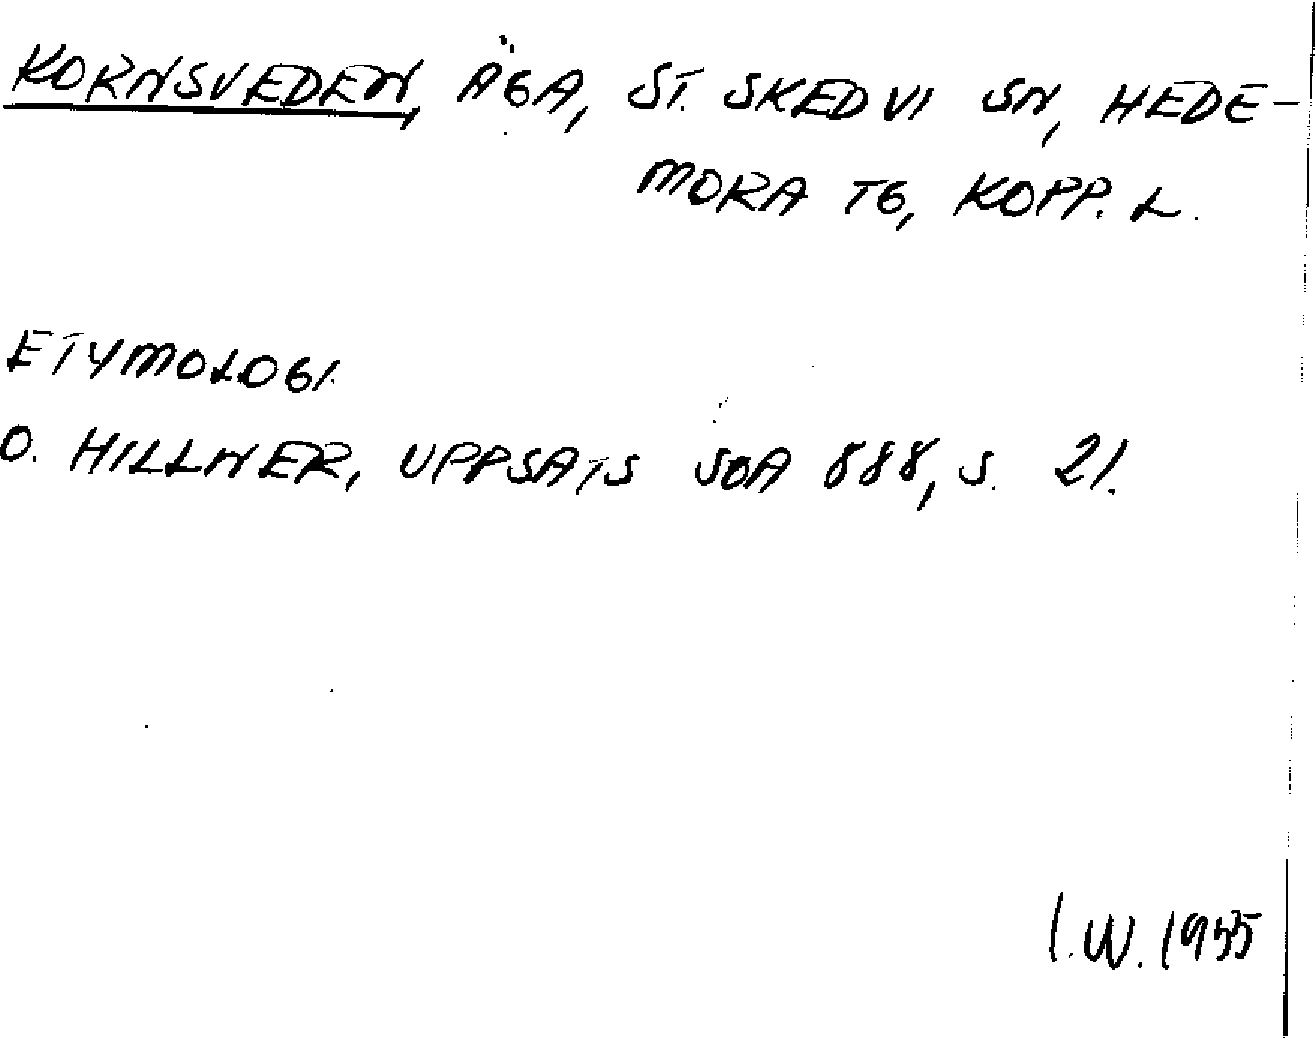 KORNSVEDEN, ÄGA, ST. SKEDVI SN, HEDE-
MORA TG, KOPP. L.
ETYMOLOGI.
O. HILLNER, UPPSATS SOA 888, S. 21.
I.W. 1955